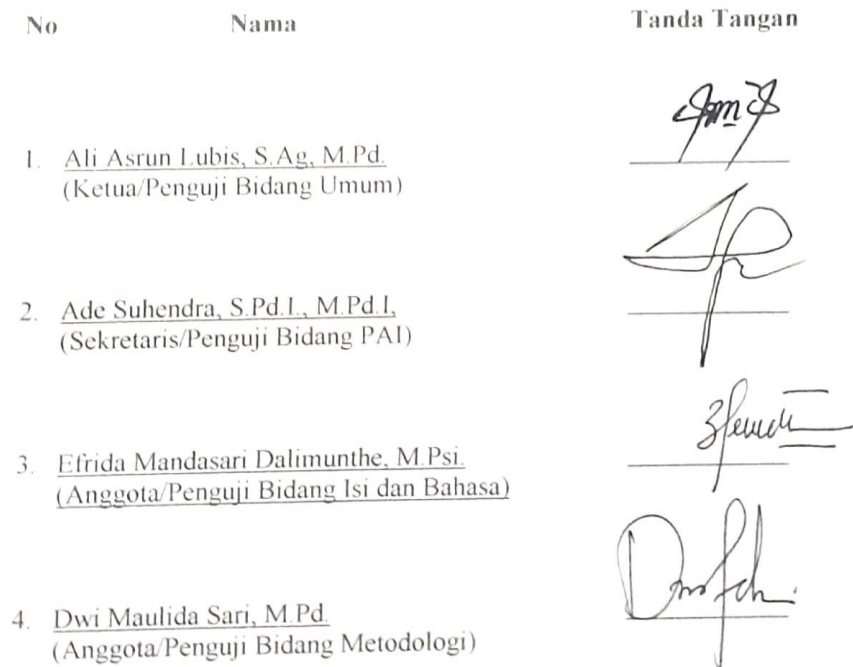 No Nama Tanda Tangan
1. Ali Asrun Lubis, S.Ag, M.Pd.
(Ketua/Penguji Bidang Umum)
2. Ade Suhendra, S.Pd.I., M.Pd.I,
(Sekretaris/Penguji Bidang PAI)
3. Efrida Mandasari Dalimunthe, M.Psi.
(Anggota/Penguji Bidang Isi dan Bahasa)
4. Dwi Maulida Sari, M.Pd.
(Anggota/Penguji Bidang Metodologi)